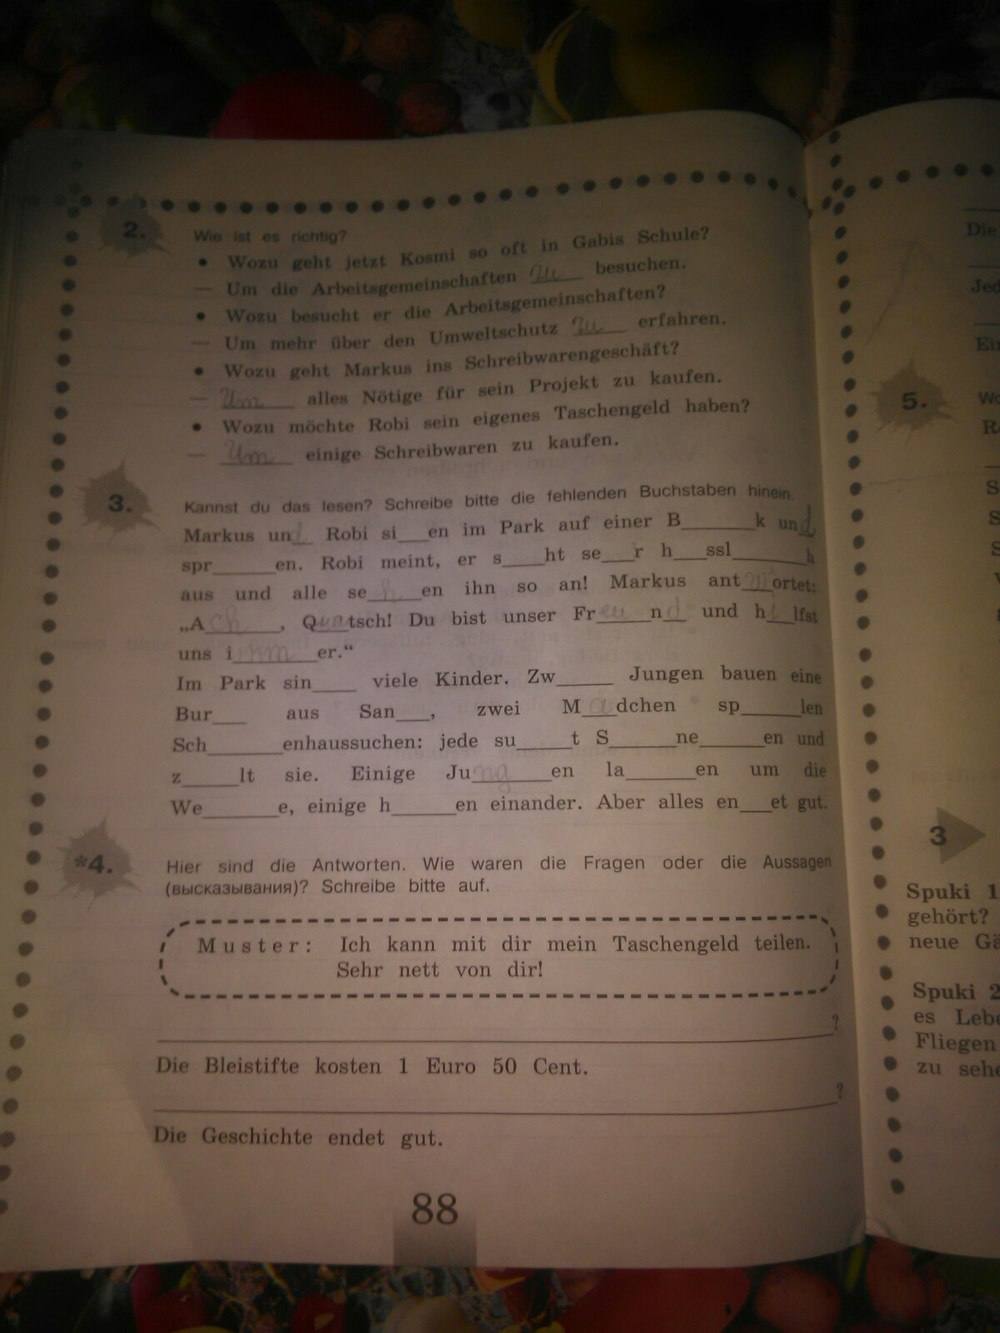 2. Wie ist es richtig?
• Wozu geht jetzt Kosmi so oft in Gabis Schule?
— Um die Arbeitsgemeinschaften zu besuchen.
• Wozu besucht er die Arbeitsgemeinschaften?
— Um mehr über den Umweltschutz zu erfahren.
• Wozu geht Markus ins Schreibwarengeschäft?
— Um alles Nötige für sein Projekt zu kaufen.
• Wozu möchte Robi sein eigenes Taschengeld haben?
— Um einige Schreibwaren zu kaufen.
3. Kannst du das lesen? Schreibe bitte die fehlenden Buchstaben hinein.
Markus un__ Robi si___en im Park auf einer B_______k und
spr______en. Robi meint, er s____ht se___r h___ssl_______h
aus und alle se_h_en ihn so an! Markus antwortet:
„Ach, Quatsch! Du bist unser Freund und hilfst
uns i_mm_er.“
Im Park sin____ viele Kinder. Zw_____ Jungen bauen eine
Bur___ aus San___, zwei Mädchen sp______len
Sch_______enhaussuchen: jede su_____t S______ne______en und
z_____lt sie. Einige Jungen la______en um die
We_______e, einige h______en einander. Aber alles en___et gut.
*4. Hier sind die Antworten. Wie waren die Fragen oder die Aussagen
(высказывания)? Schreibe bitte auf.
Muster: Ich kann mit dir mein Taschengeld teilen.
Sehr nett von dir!
?
Die Bleistifte kosten 1 Euro 50 Cent.
?
Die Geschichte endet gut.
88
Die
5.
3
Spuki 1
gehört?
neue
Spuki 2
es
Fliegen
zu